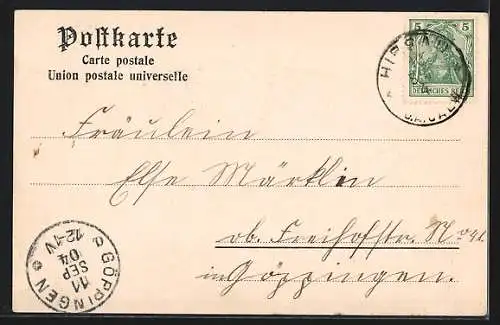 Postkarte
Carte postale
Union postale universelle
5 5
DEUTSCHES REICH
HIRSAU
O.A. CALW
Fräulein
Else Märklin
ob. Freihofstr. No 41.
in Göppingen.
GÖPPINGEN
11
SEP
04
12-1N